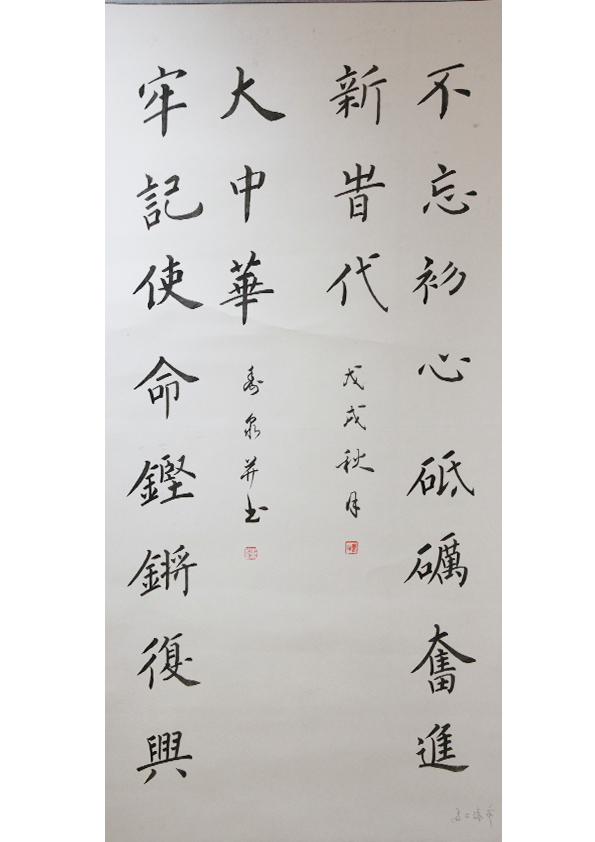 不忘初心砥礪奮進
新旹代
戊戌秋月
牢記使命鏗鏘復興
大中華
寿泉并书